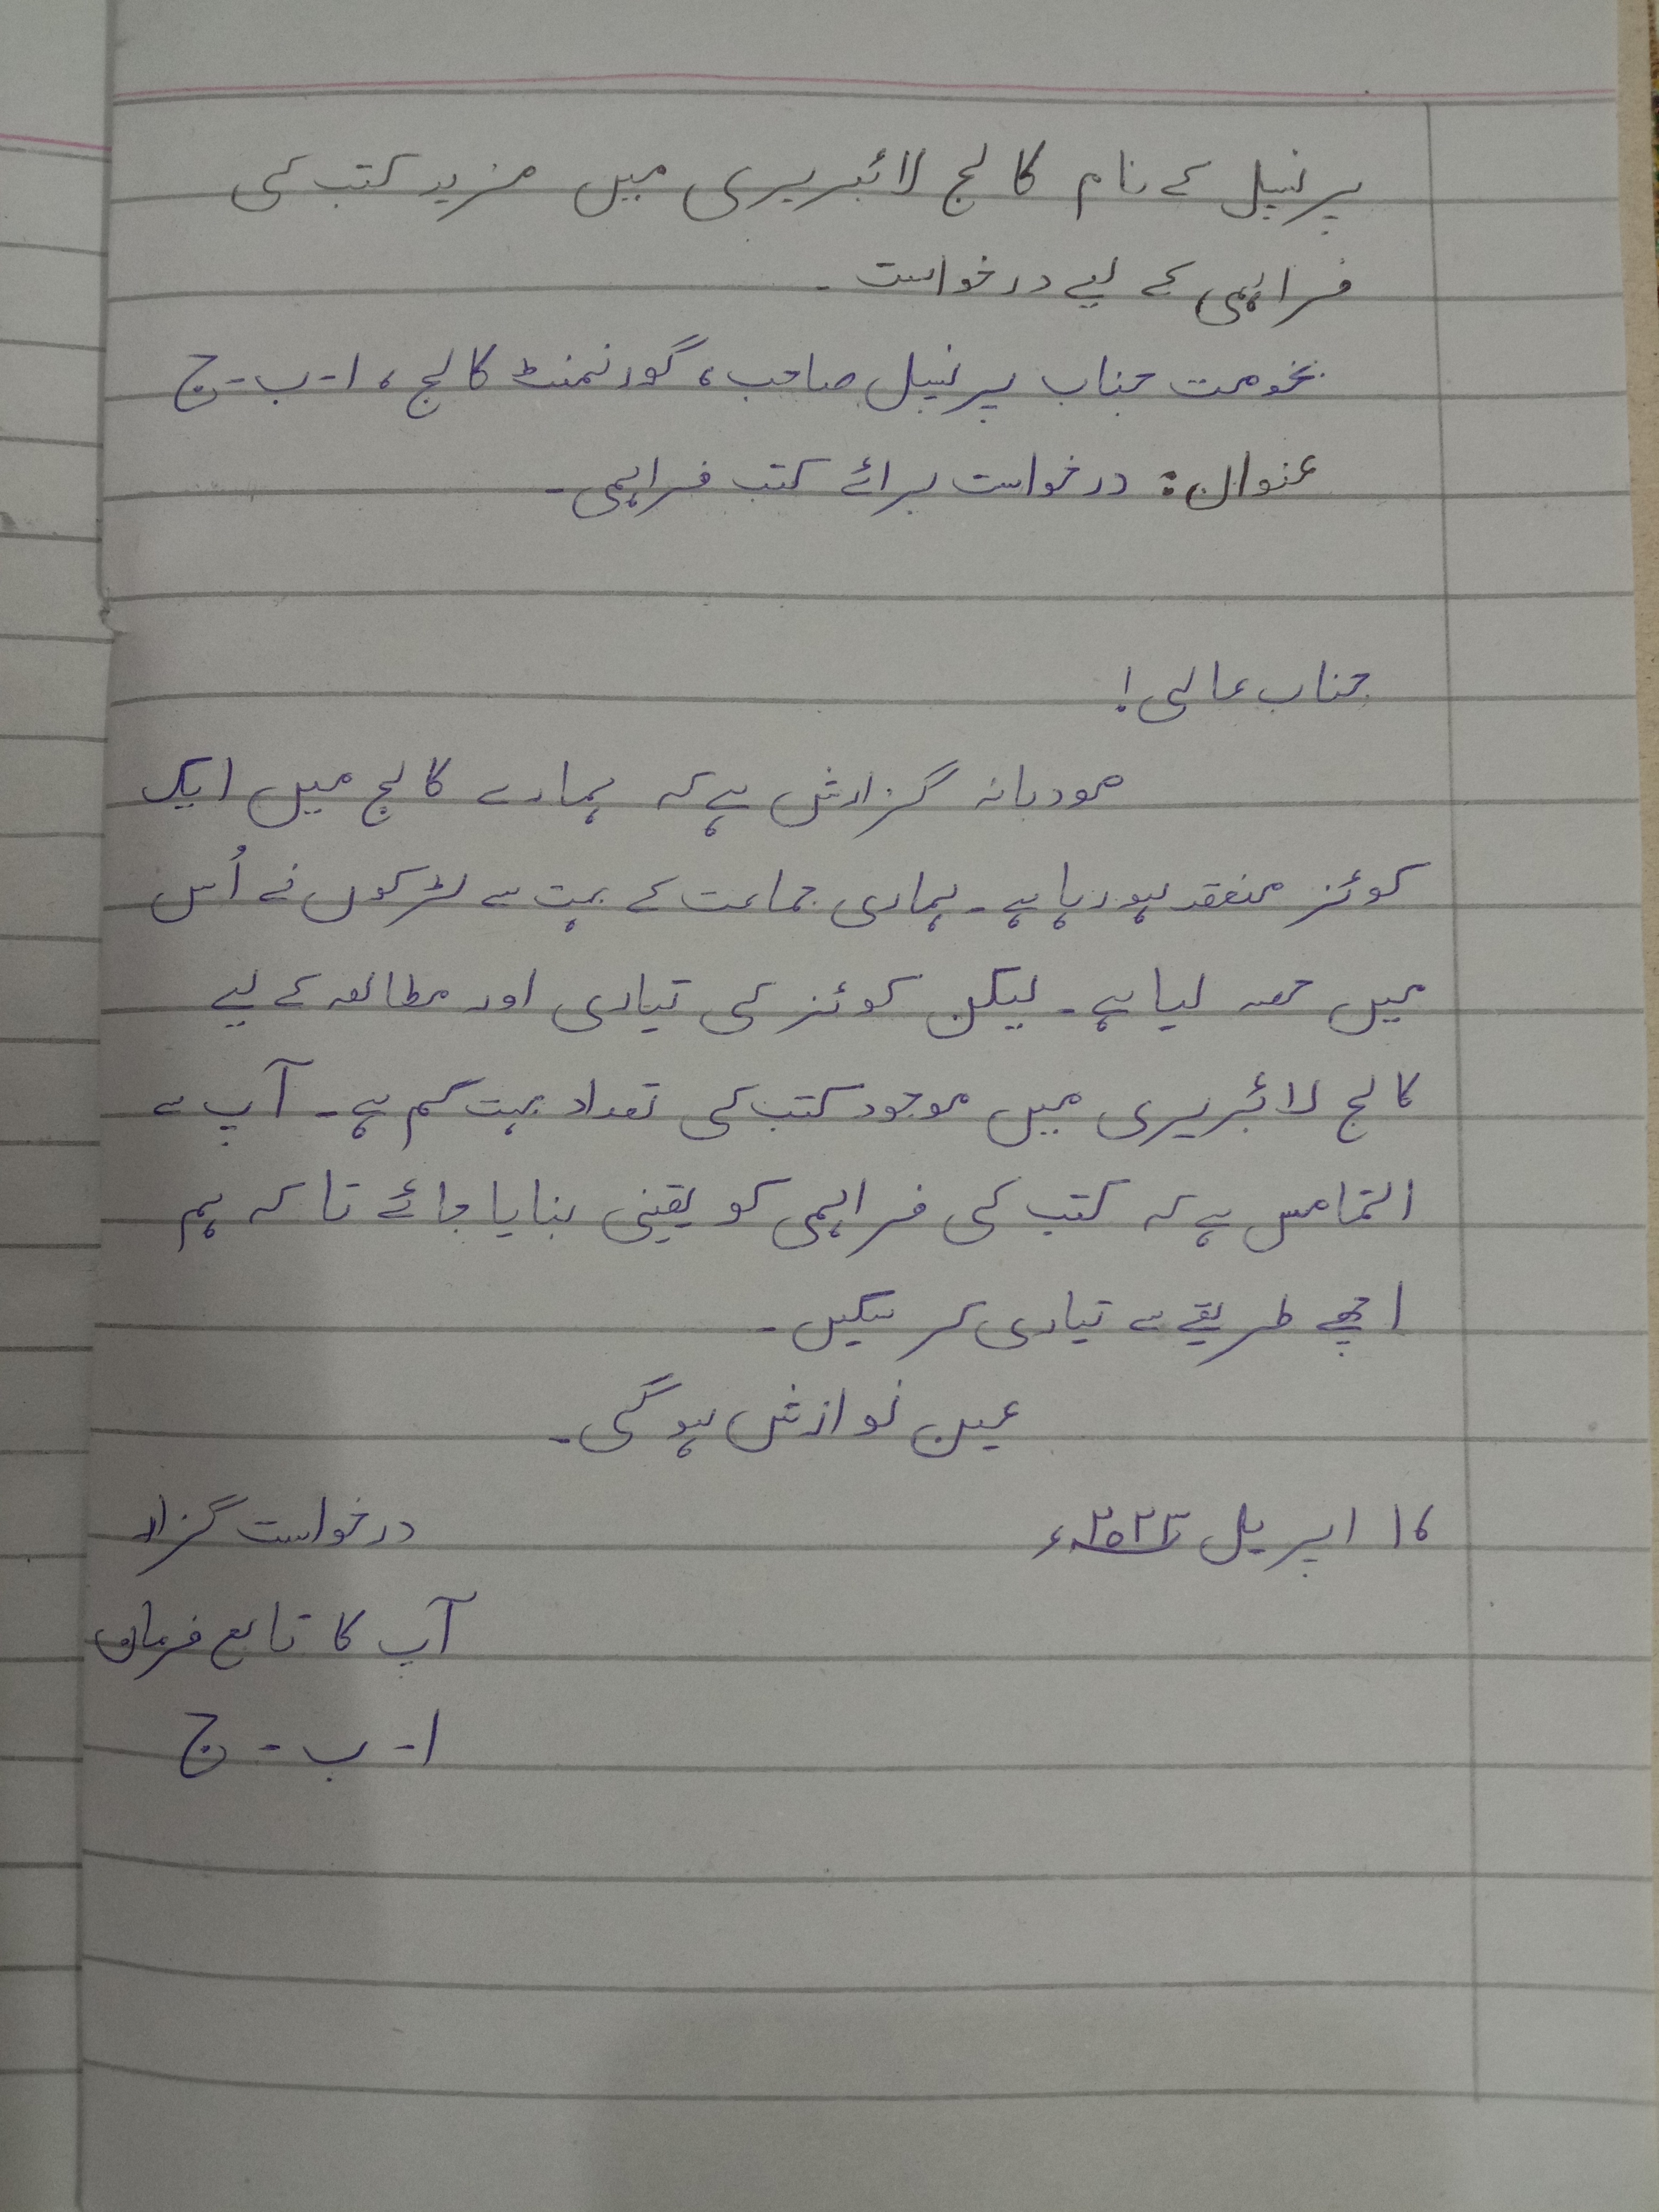 پرنسپل کے نام کالج لائبریری میں مزید کتب کی
فراہمی کے لیے درخواست۔
بخدمت جناب پرنسپل صاحب، گورنمنٹ کالج، ا۔ب۔ج
عنوان: درخواست برائے کتب فراہمی۔
جناب عالی!
مودبانہ گزارش ہے کہ ہمارے کالج میں ایک
کوئز منعقد ہو رہا ہے۔ ہماری جماعت کے بہت سے لڑکوں نے اُس
میں حصہ لیا ہے۔ لیکن کوئز کی تیاری اور مطالعہ کے لیے
کالج لائبریری میں موجود کتب کی تعداد بہت کم ہے۔ آپ سے
التماس ہے کہ کتب کی فراہمی کو یقینی بنایا جائے تا کہ ہم
اچھے طریقے سے تیاری کر سکیں۔
عین نوازش ہو گی۔
۱۶ اپریل
درخواست گزار
آپ کا تابع فرمان
ا۔ ب۔ ج